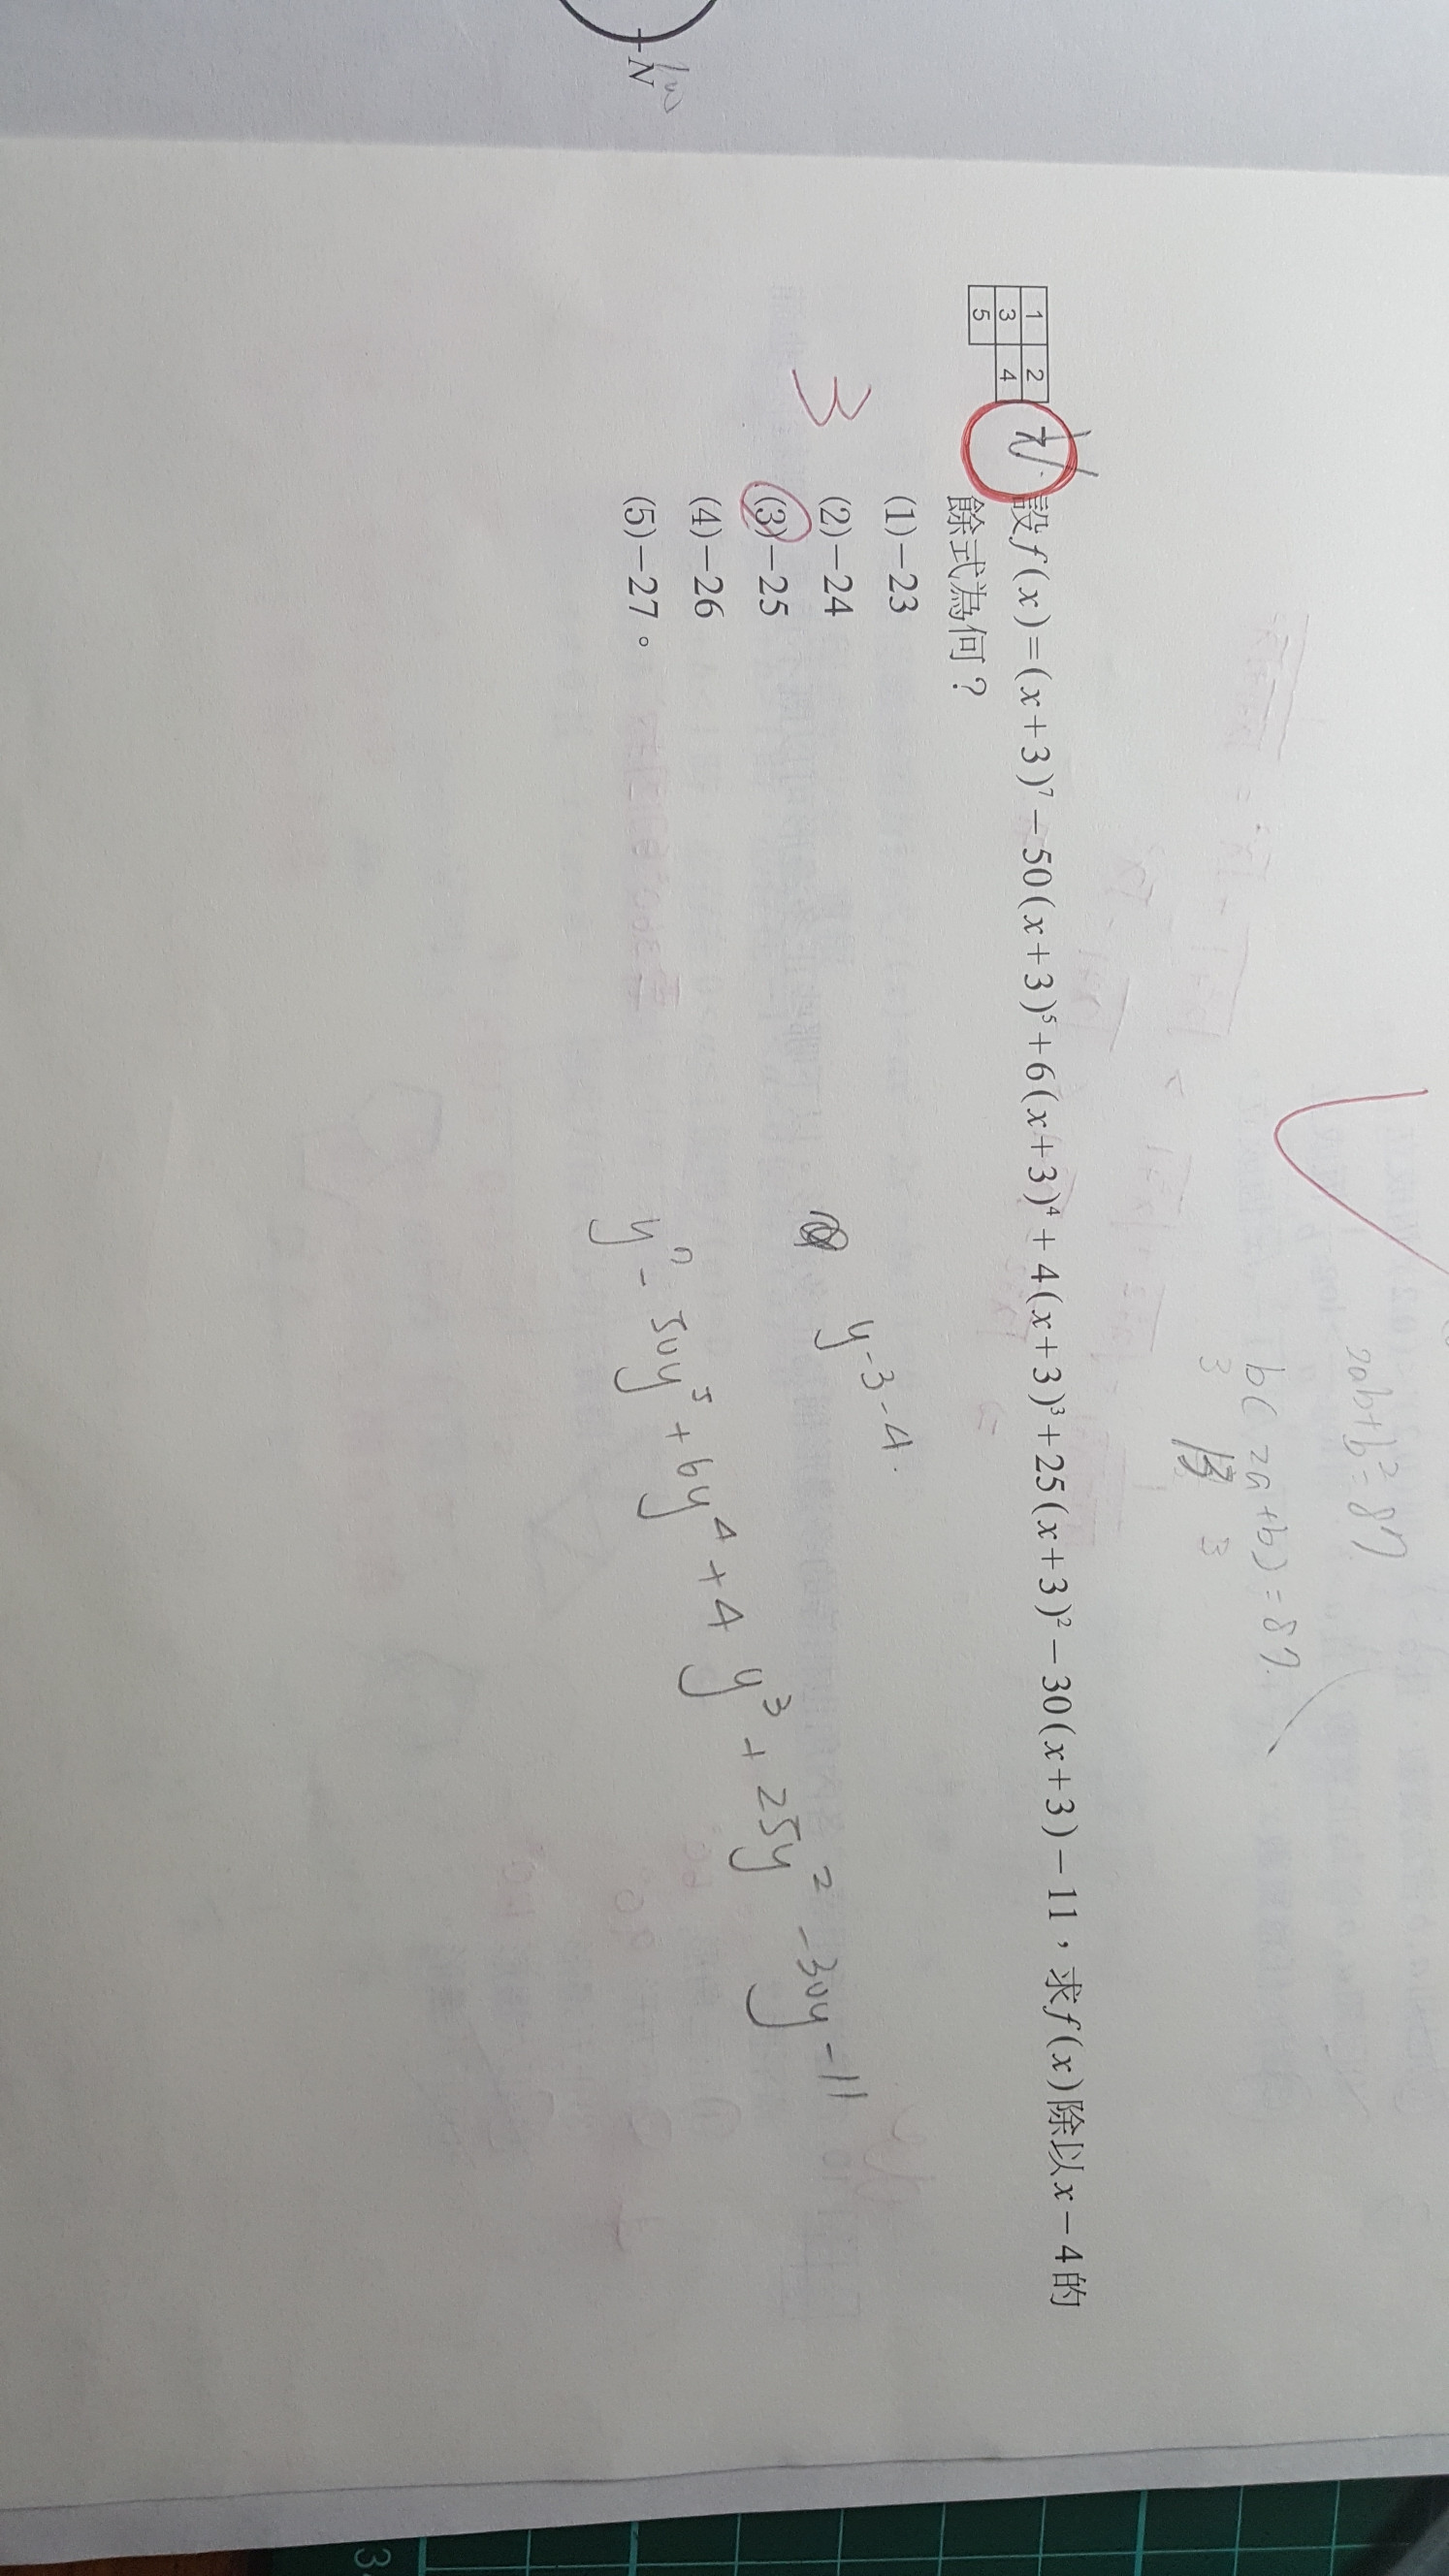 2ab+b²=87
b(2a+b)=87
3 3
N
1 2
3 4
5
設f(x)=(x+3)⁷−50(x+3)⁵+6(x+3)⁴+4(x+3)³+25(x+3)²−30(x+3)−11，求f(x)除以x−4的
餘式為何？
(1)−23
(2)−24
3
(3)−25
(4)−26
(5)−27。
y-3-4.
y⁷-50y⁵+6y⁴+4y³+25y²-30y-11
3